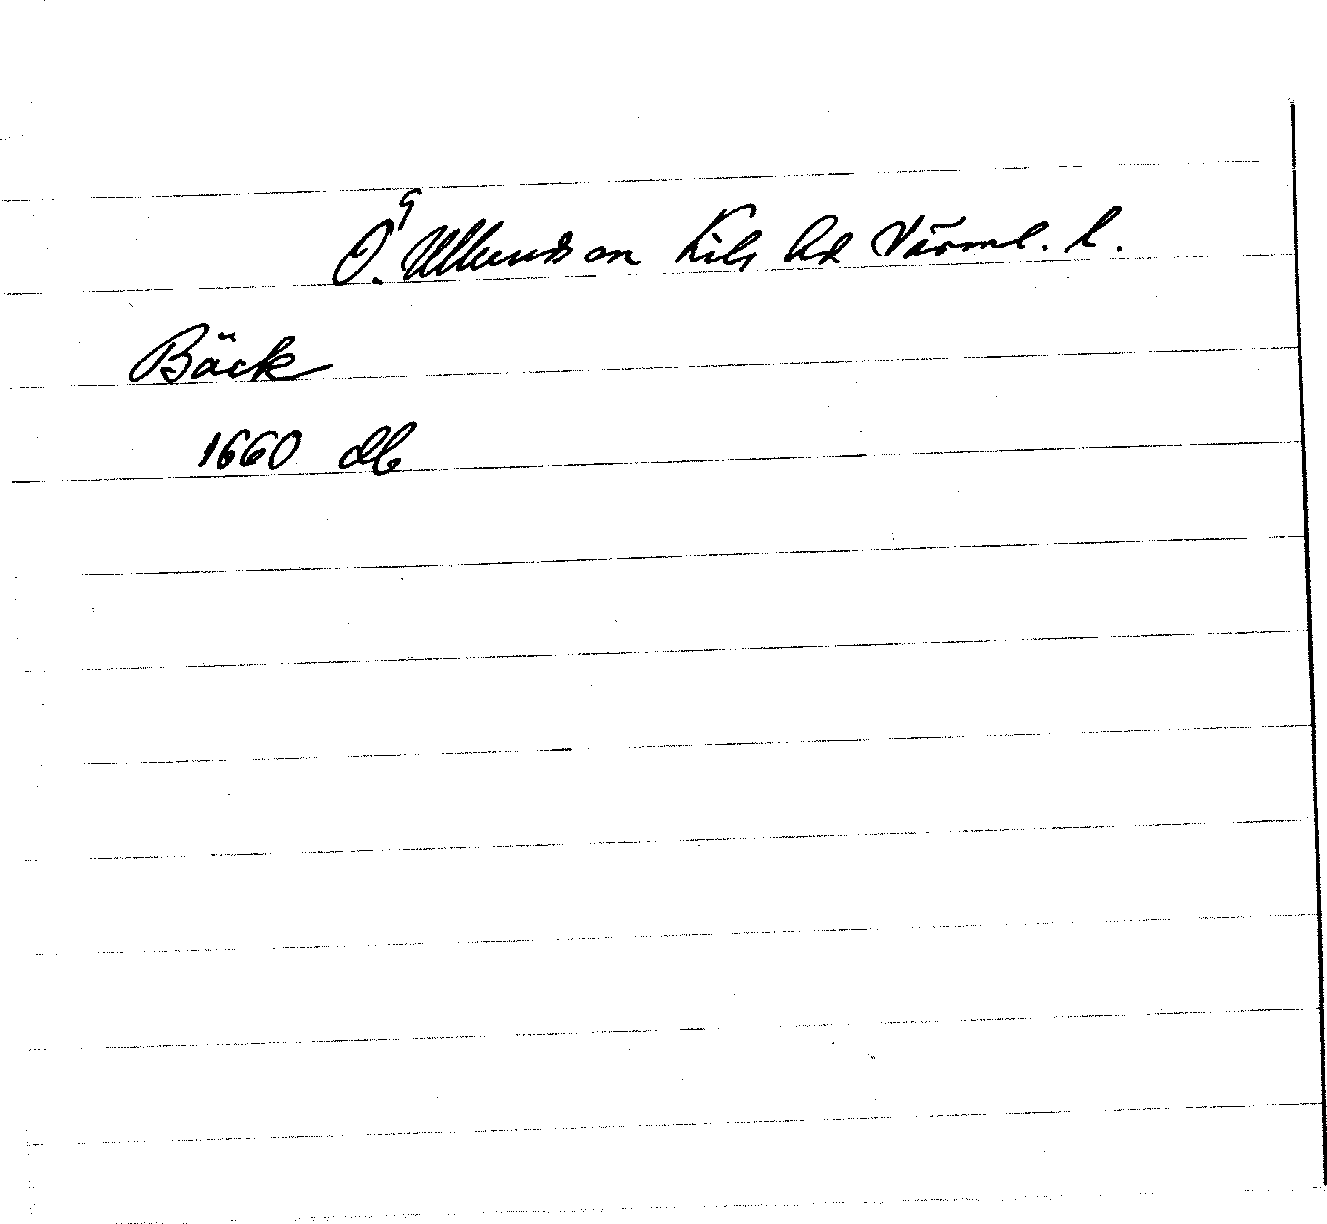 Ö. Ullerud sn Kils hd Värml. l.
Bäck
1660 db